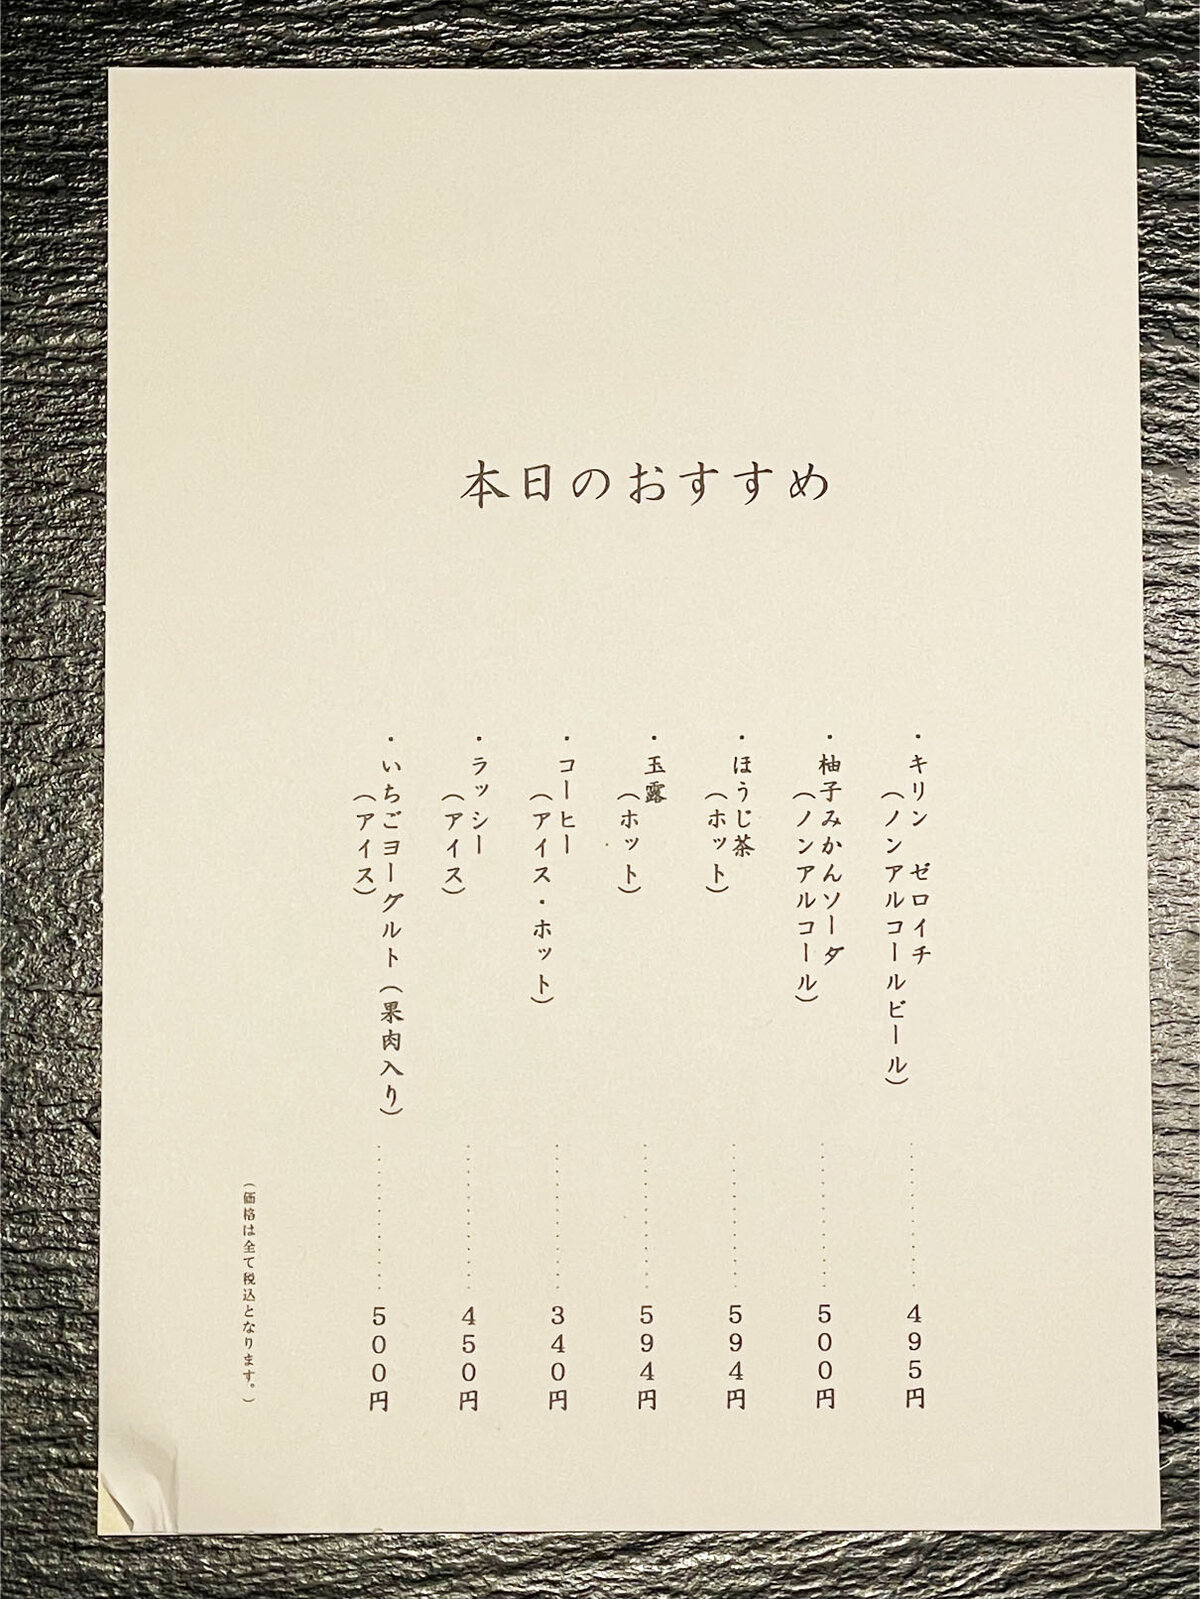 本日のおすすめ
・キリン　ゼロイチ
（ノンアルコールビール）
495円
・柚子みかんソーダ
（ノンアルコール）
500円
・ほうじ茶
（ホット）
594円
・玉露
（ホット）
594円
・コーヒー
（アイス・ホット）
340円
・ラッシー
（アイス）
450円
・いちごヨーグルト（果肉入り）
（アイス）
500円
（価格は全て税込となります。）